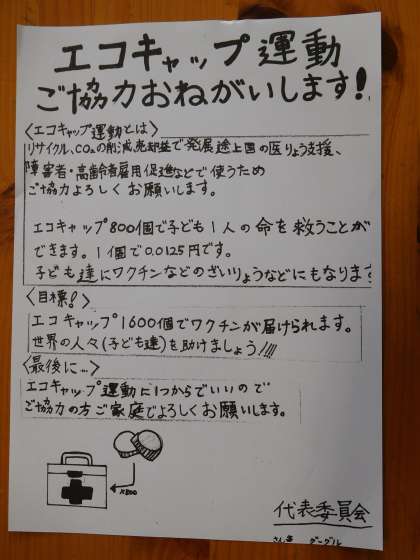 エコキャップ運動
ご協力おねがいします!
〈エコキャップ運動とは〉
リサイクル、CO2の削減売却益で発展途上国の医りょう支援、
障害者・高齢者雇用促進などで使うため
ご協力よろしくお願いします。
エコキャップ800個で子ども1人の命を救うことが
できます。1個で0.0125円です。
子ども達にワクチンなどのざいりょうなどにもなります
〈目標!〉
エコキャップ1600個でワクチンが届けられます。
世界の人々(子ども達)を助けましょう!!!!
〈最後に...〉
エコキャップ運動に1つからでいいので
ご協力の方ご家庭でよろしくお願いします。
×800
代表委員会